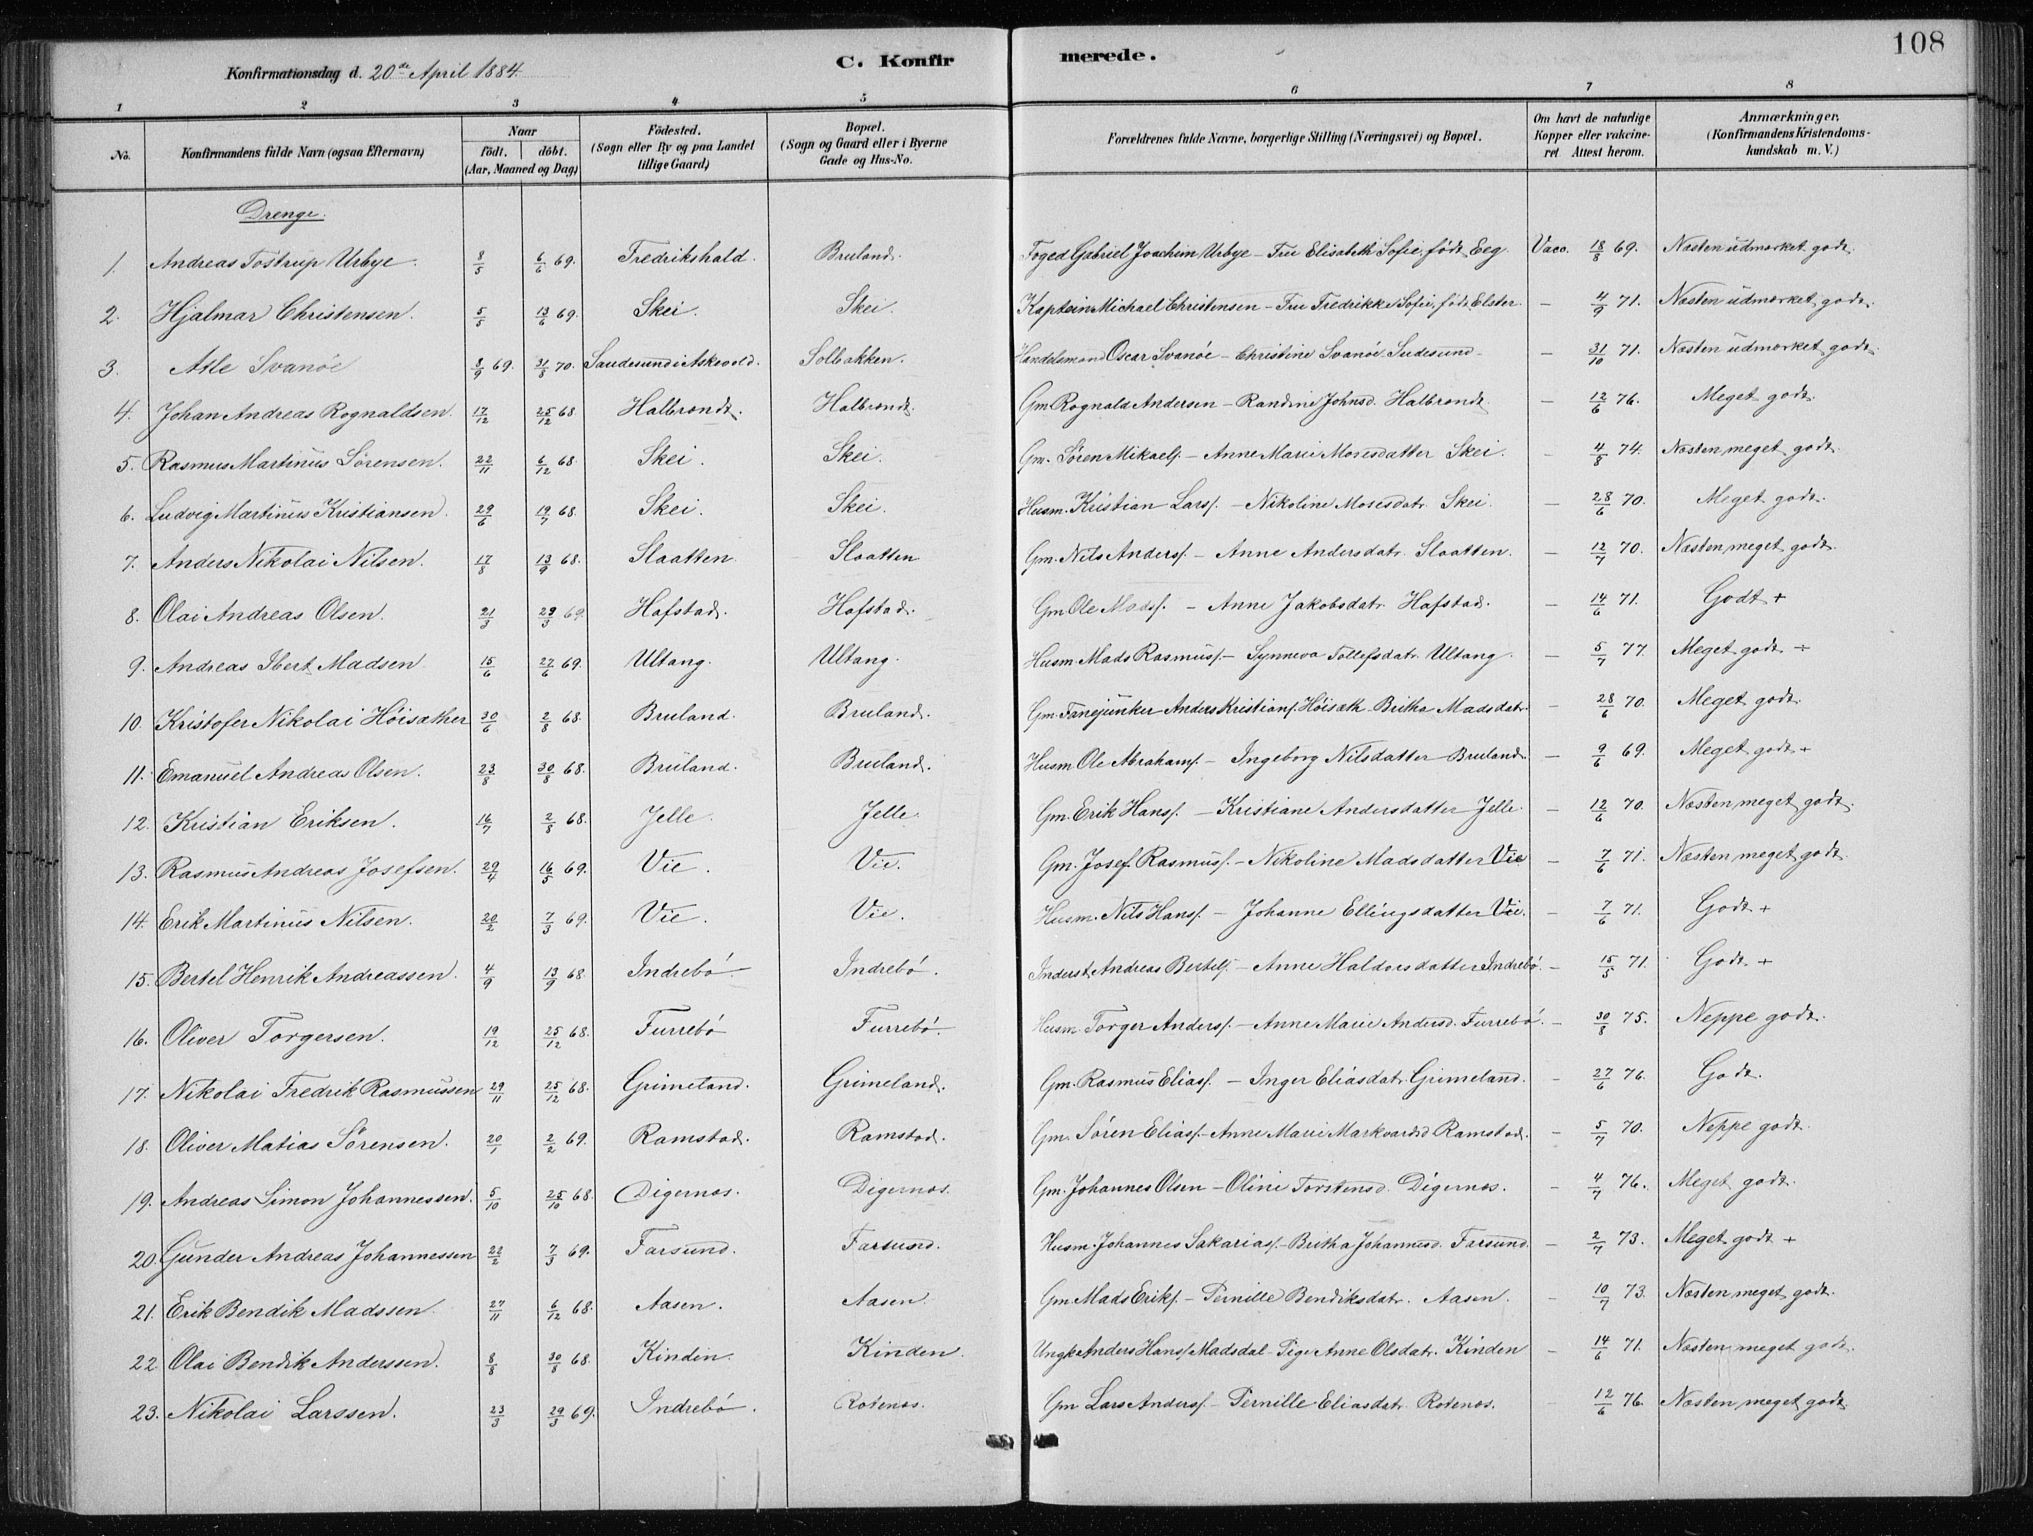 108
Konfirmationsdag d. 20de April 1884.
C. Konfirmerede.
1 2 3 4 5 6 7 8
No.
Konfirmandens fulde Navn (ogsaa Efternavn)
Naar
födt. döbt.
(Aar, Maaned og Dag)
Födested.
(Sogn eller By og paa Landet
lillige Gaard)
Bopæl.
(Sogn og Gaard eller i Byerne
Gade og Hus-No.
Forældrenes fulde Navne, borgerlige Stilling (Næringsvei) og Bopæl.
Om havt de naturlige
Kopper eller vakcine-
ret Attest herom.
Anmærkninger,
(Konfirmandens Kristendoms-
kundskab m. V.)
Drenge.
1. Andreas Tostrup Urbye. 8/5 6/6 69. Fredrikshald. Bruland. Foged Gabriel Joachim Urbye – Fru Elisabeth Sofie, født Eeg. Vacc. 18/8 69. Næsten udmerket godt.
2. Hjalmar Christensen. 5/5 13/6 69. Skei. Skei. Kaptein Michael Christensen – Fru Fredrikke Sofie, født Elster – 4/9 71. Næsten udmerket godt.
3. Atle Svanöe 8/9 69. 31/8 70. Sandesund i Askevold. Solbakken. Handelsmand Oscar Svanöe – Christine Svanöe Sudesund – – 31/10 71. Næsten udmerket godt.
4. Johan Andreas Rognaldsen. 17/12 25/12 68. Halbrendt. Halbrendt. Gm Rognald Andersen – Randine Johnsd. Halbrendt. – 12/6 76. Meget godt.
5. Rasmus Martinus Sörensen. 22/11 6/12 68. Skei. Skei. Gm. Sören Mikaels. – Anne Marie Mosesdatter Skei. – 4/8 74. Næsten meget godt.
6. Ludvig Martinus Kristiansen. 29/6 19/7 68. Skei. Skei. Husm. Kristian Lars. – Nikoline Mosesdatr. Skei. – 28/6 70. Meget godt.
7. Anders Nikolai Nilsen. 17/8 13/9 68. Slaatten. Slaatten Gm. Nils Anders. – Anne Andersdatr. Slaatten. – 12/7 70. Næsten meget godt.
8. Olai Andreas Olsen. 21/3 29/3 69. Hafstad. Hafstad. Gm Ole Mads. – Anne Jakobsdatr. Hafstad. – 14/6 71. Godt +
9. Andreas Ibert Madsen. 15/6 27/6 69. Ultang. Ultang. Husm. Mads Rasmus. – Synneva Tollefsdatr. Ultang. – 5/7 77. Meget godt +
10. Kristofer Nikolai Höisæther 30/6 2/8 68. Bruland. Bruland. Gm. Fanejunker Anders Kristians. Höisæth. Britha Madsdatr. – 28/6 70. Meget godt.
11. Emanuel Andreas Olsen. 23/8 30/8 68. Bruland. Bruland. Husm. Ole Abrahams. – Ingeborg Nilsdatter Bruland. – 9/6 69. Meget godt +
12. Kristian Eriksen. 16/7 2/8 68. Jelle. Jelle. Gm. Erik Hans. – Kristiane Andersdatter Jelle. – 12/6 70. Næsten meget godt.
13. Rasmus Andreas Josefsen. 29/4 16/5 69. Vie. Vie. Gm. Josef Rasmus. – Nikoline Madsdatter Vie – 7/6 71. Næsten meget godt.
14. Erik Martinus Nilsen. 20/2 7/3 69. Vie. Vie. Husm. Nils Hans. – Johanne Ellingsdatter Vie. – 7/6 71. Godt +
15. Bertel Henrik Andreassen. 4/9 13/9 68. Indrebö. Indrebö. Inderst. Andreas Bertels. – Anne Haldorsdatter Indrebö. – 15/5 71. Godt +
16. Oliver Torgersen. 19/12 25/12 68. Furrebö Furrebö. Husm. Torger Anders. – Anne Marie Andersd. Furrebö. – 30/8 75. Neppe godt.
17. Nikolai Fredrik Rasmussen 29/11 25/12 68. Grimeland. Grimeland. Gm. Rasmus Elias. – Inger Eliasdatr. Grimeland. – 27/6 76. Godt.
18. Oliver Matias Sörensen. 20/1 2/2 69. Ramstad. Ramstad. Gm. Sören Elias. – Anne Marie Markvardsd. Ramstad. – 5/7 70. Neppe godt.
19. Andreas Simon Johannessen. 5/10 25/10 68. Digernæs. Digernæs. Gm. Johannes Olsen – Oline Torstensd. Digernæs. – 4/7 76. Meget godt.
20. Gunder Andreas Johannessen 22/2 7/3 69. Farsund. Farsund. Husm. Johannes Sakarias. – Britha Johannesd. Farsund. – 2/7 73. Meget godt +
21. Erik Bendik Madssen. 27/11 6/12 68. Aasen. Aasen. Gm. Mads Eriks. – Pernille Bendiksdatr. Aasen. – 10/7 73. Næsten meget godt.
22. Olai Bendik Anderssen. 8/8 30/8 68. Kinden. Kinden. Ungk. Anders Hans. Madsdal – Pige Anne Olsdatr. Kinden – 14/6 71. Næsten meget godt.
23. Nikolai Larssen. 23/3 29/3 69. Indrebö. Rotenæs. Gm Lars Anders. – Pernille Eliasdatr. Rotenæs. – 12/6 76. Næsten meget godt.